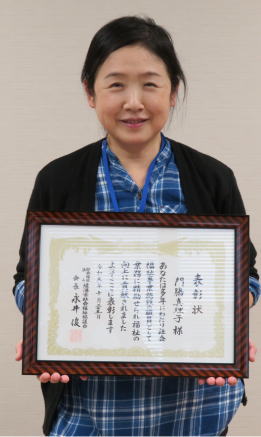 表彰状
門脇真理子様
あなたは多年にわたり社会
福祉事業施設の職員として
業務に精励せられ福祉の
向上に貢献されました
よってここに表彰します
令和元年十月二十五日
会長 永井俊